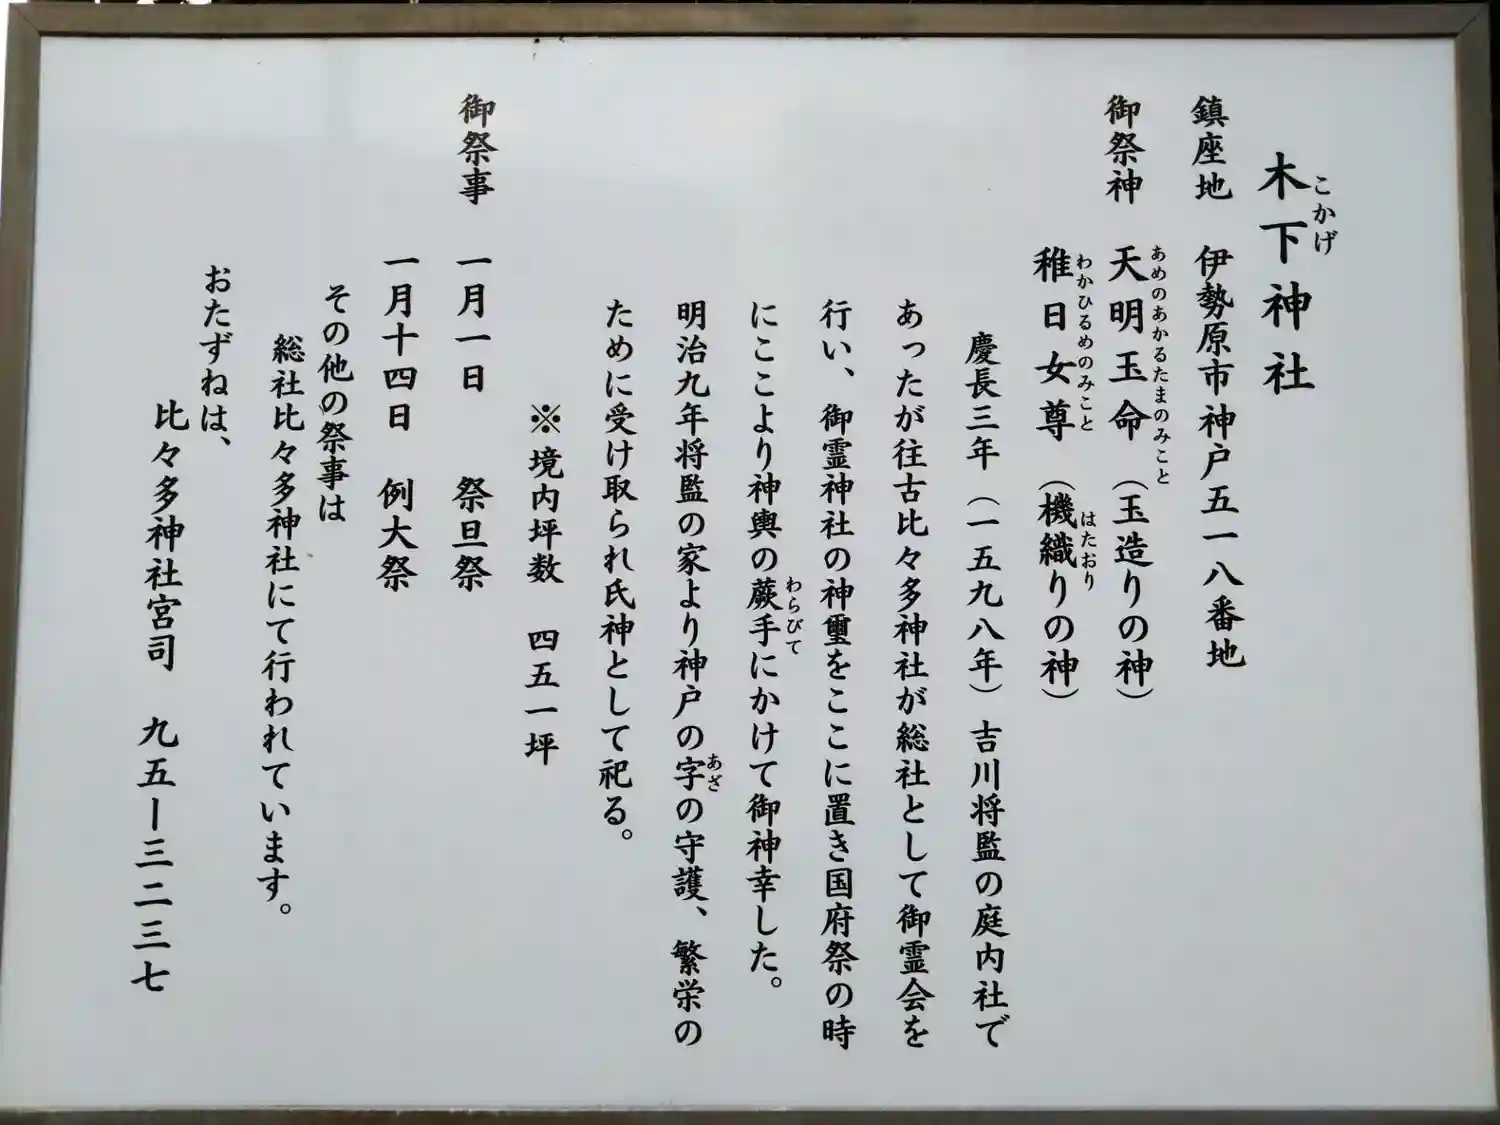 木下神社
こかげ
鎮座地　伊勢原市神戸五一八番地
御祭神　天明玉命（玉造りの神）
あめのあかるたまのみこと
稚日女尊（機織りの神）
わかひるめのみこと　はたおり
慶長三年（一五九八年）吉川将監の庭内社で
あったが往古比々多神社が総社として御霊会を
行い、御霊神社の神璽をここに置き国府祭の時
にここより神輿の蕨手にかけて御神幸した。
わらびて
明治九年将監の家より神戸の字の守護、繁栄の
あざ
ために受け取られ氏神として祀る。
※境内坪数　四五一坪
御祭事　一月一日　祭旦祭
一月十四日　例大祭
その他の祭事は
総社比々多神社にて行われています。
おたずねは、
比々多神社宮司　九五ー三二三七